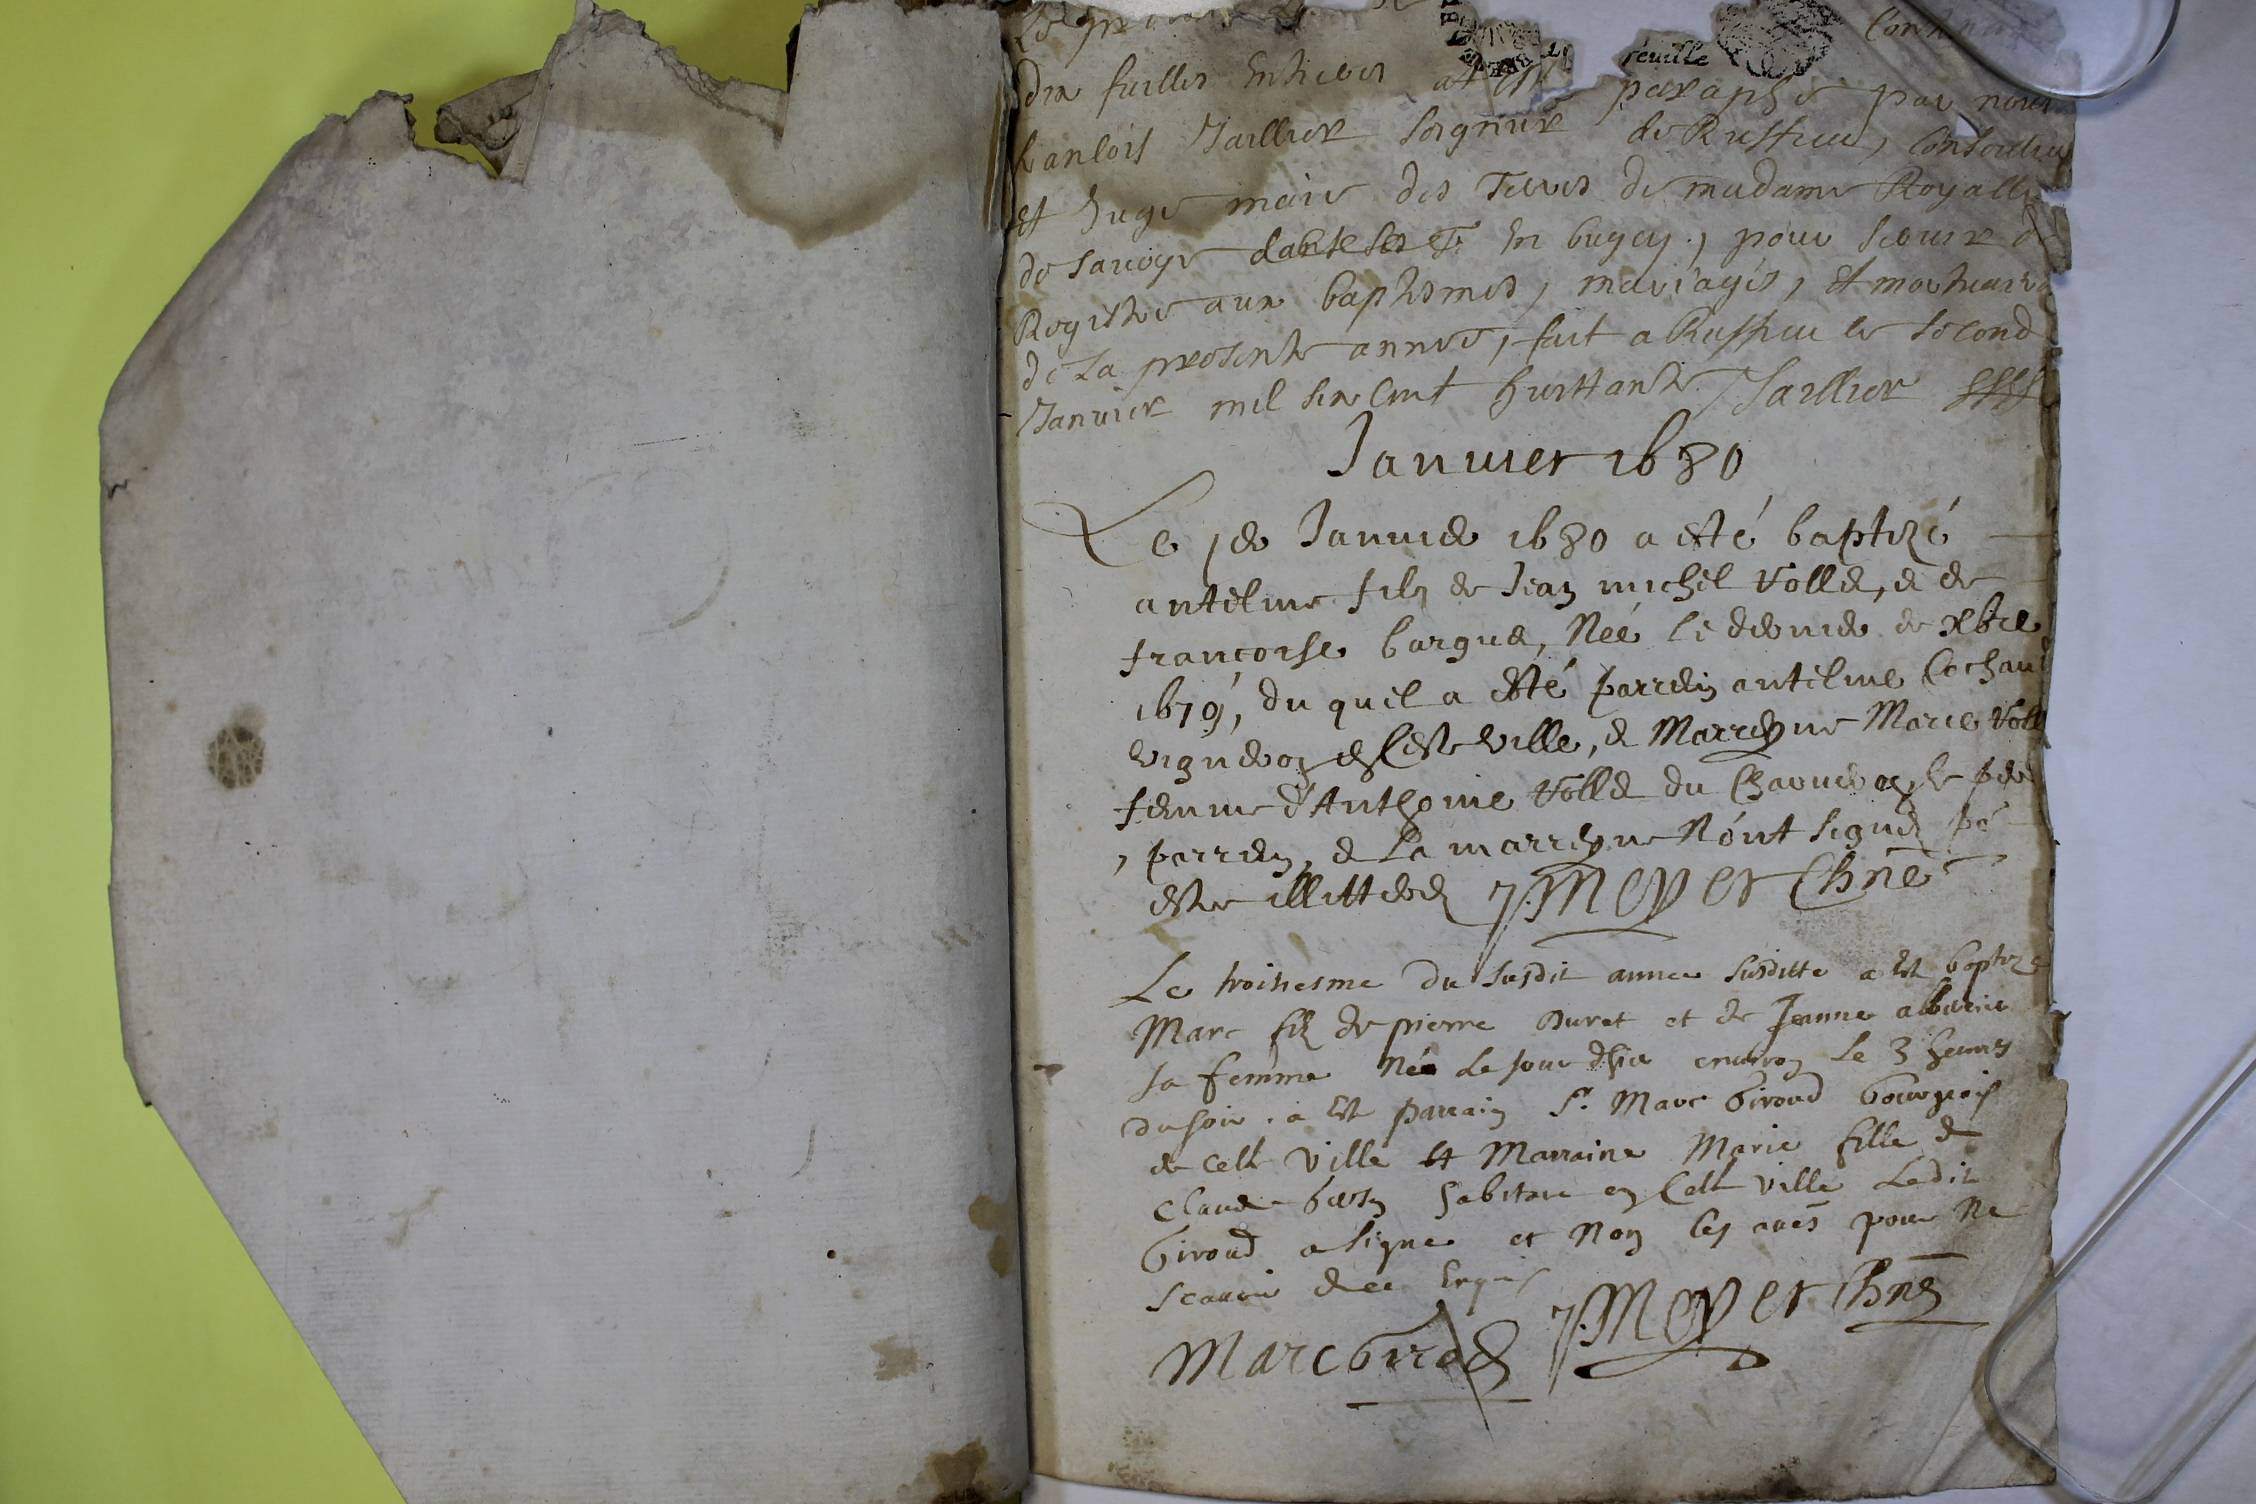 Le pr
dix fuilles entieres at est paraphé par nous
feuille
Contenant
francois Jaillier seigneur de Ruffieu, conseiller
et Juge maie des Terres de madame Royalle
de Savoye dans en bugey, pour servir de
Registre aux baptesmes, mariages, et mortuaires
de La presente année, fait a Ruffieu le second
Janvier mil six cent huittante Jaillier
Januier 1680
Le 1er Januier 1680 a esté baptizé
antelme filz de Jean michel Vollet, et de
francoise barguet, Née le dernier de xbre
1679, du quel a esté parrein antelme Cochau
vigneron de ceste ville, et Marreyne Marie Voll
femme d'Anthoine Vollet du le pere
, parrein, et La marreyne N'ont signez po
estre illitterez J. Moyer Chne
Le troisiesme du susdit annee susditte a est baptizé
Marc filz de pierre Duret et de Jeanne
sa femme Née le jour d'hier environ le 3 heures
du soir. a est parrain Sr. Marc Giroud bourgeois
de cette ville et Marraine Marie fille de
Claude habitant en cette ville Ledit
Giroud a signe et Non les aues pour ne
scavoir de ce Enquis
J. Moyer Chne
Marc Girod